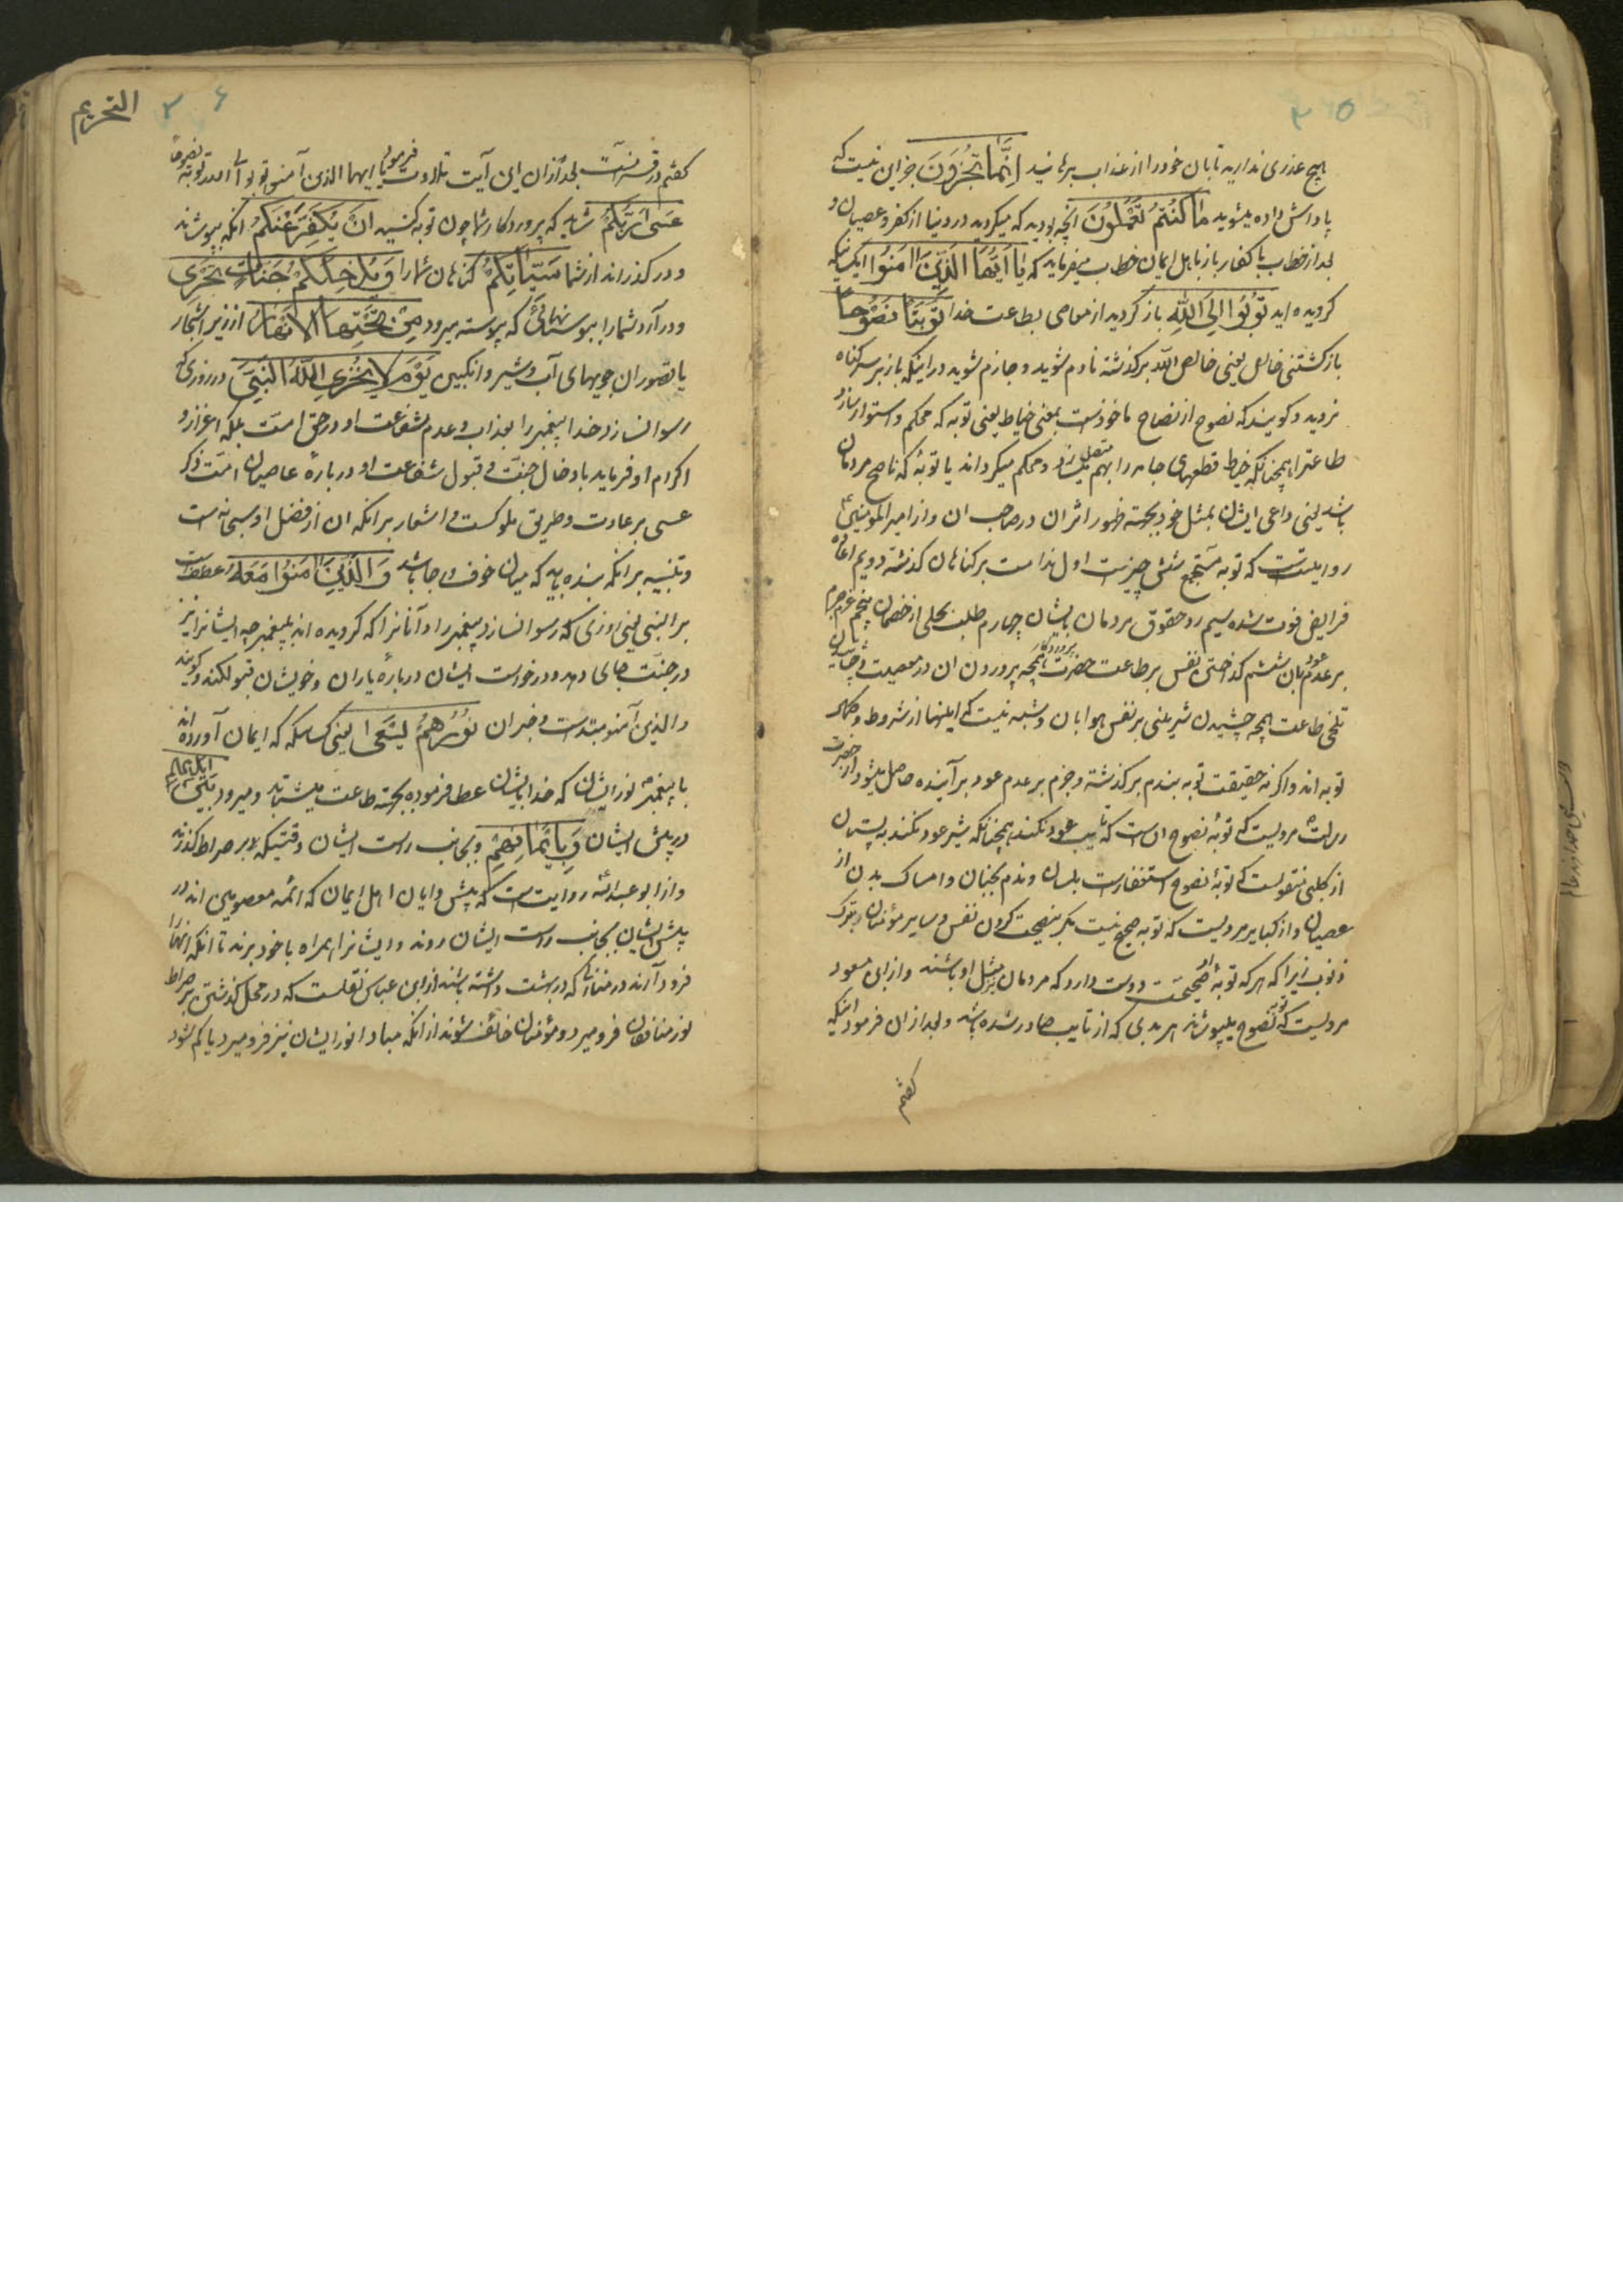 ۳۵
هیچ عذری ندارید تا بان خود را از عذاب برهانید اِنَّمَا تُجْزَوْنَ جز این نیست که
پاداش داده میشوید مَا کُنْتُمْ تَعْمَلُونَ آنچه بودید که میکردید در دنیا از کفر و عصیان و
بعد از خطاب با کفار باز باهل ایمان خطاب میفرماید که یَا اَیُّهَا الَّذِینَ اٰمَنُوا ای کسانیکه
کرویده اید تُوبُوا اِلَی اللّٰهِ باز کردید از معاصی بطاعت خدا تَوْبَةً نَصُوحًا
بازکشتنی خالص یعنی خالص الله برکذشته نادم شوید و جازم شوید در اینکه باز بر سر کناه
نروید و کویند که نصوح از نصاح ماخوذست بمعنی خیاط یعنی توبه که محکم و استوار سازد
طاعترا همچنانکه خیاط قطعهای جامه را بهم متصل سازد و محکم میکرداند یا توبهٔ که ناصح مردمان
باشد یعنی داعی ایشان بمثل خود بجهته ظهور اثر ان در صاحب ان و از امیر المومنین ع
روایتست که توبه مستجمع شش چیزست اول ندامت بر کناهان کذشته دویم اعاده
فرایض فوت شده سیم رد حقوق مردمان بایشان چهارم طلب بحلی از خصمان پنجم عزم جزم
بر عدم عود بان ششم کداختن نفس بر طاعت حضرت پروردکار همچه پروردن ان در معصیت و چشانیدن بان
تلخی طاعت همچه چشیدن شیرینی بر نفس هوا بان و شبهه نیست که اینها از شروط و کمال
توبه اند و اکر نه حقیقت توبه بندم بر کذشته و جزم بر عدم عود بر آینده حاصل میشود از حضرت
رسالت مرویست که توبهٔ نصوح انست که تایب عود نکند همچنانکه شیر عود نکند به پستان
از کلبی منقولست که توبهٔ نصوح استغفارست بلسان و ندم بجنان و امساک بدن از
عصیان و از کبایر مرویست که توبه صحیح نیست مکر بنصیحت کردن نفس و سایر مؤمنان بترک
ذنوب زیرا که هر که توبهٔ او صحیحست دوست دارد که مردمان بمثل او باشند و از ابن مسعود
مرویست که توبه نصوح میپوشاند هر بدی که از تایب صادر شده باشد و بعد از ان فرمود اینکه
کفتم
۳۶
التحریم
کفتم در قرآنست بعد از ان این آیت تلاوت فرمود یا ایها الذین آمنوا توبوا الی الله توبة نصوحا
عَسَی رَبُّکُمْ شاید که پروردکار شما چون توبه کنید اَنْ یُکَفِّرَ عَنْکُمْ آنکه بپوشاند
و درکذراند از شما سَیِّئَاتِکُمْ کناهان شما را وَیُدْخِلَکُمْ جَنَّاتٍ تَجْرِی
و در آرد شما را ببوستانهائی که پیوسته میرود مِنْ تَحْتِهَا الْاَنْهَارُ از زیر اشجار
یا قصور ان جویهای آب و شیر و انکبین یَوْمَ لَا یُخْزِی اللّٰهُ النَّبِیَّ در روزی که
رسوا نسازد خدا پیغمبر را بعذاب و عدم شفاعت او در حق امت بلکه اعزاز و
اکرام او فرماید بادخال جنت و قبول شفاعت او در بارهٔ عاصیان امت ذکر
عسی بر عادت و طریق ملوکست و اشعار بر انکه ان از فضل او سبحانه است
و تنبیه بر انکه بنده باید که میان خوف و رجا باشد وَالَّذِینَ اٰمَنُوا مَعَهُ عطفست
بر النبی یعنی روزی که رسوا نسازد پیغمبر را و آنانرا که کرویده اند به پیغمبر چه ایشانرا نیز
در جنت جای دهد و درخواست ایشان دربارهٔ یاران و خویشان قبول کند و کویند
والذین آمنوا مبتداست و خبر ان نُورُهُمْ یَسْعَی یعنی کسانیکه که ایمان آورده اند
با پیغمبر نور ایشان که خدا بایشان عطا فرموده بجهته طاعت میشتابد و میرود بَیْنَ اَیْدِیهِمْ
در پیش ایشان وَبِاَیْمَانِهِمْ و بجانب راست ایشان وقتیکه بر صراط کذرند
و از ابو عبدالله روایت است که پیش وایان اهل ایمان که ائمه معصومین اند در
پیش ایشان و بجانب راست ایشان روند و ایشانرا همراه با خود برند تا آنکه انهارا
فرود آرند در منازلی که در بهشت داشته باشند از ابن عباس نقلست که در محل کذشتن بر صراط
نور منافقان فرو میرد و مؤمنان خائف شوند از انکه مبادا نور ایشان نیز فرو میرد یا کم شود